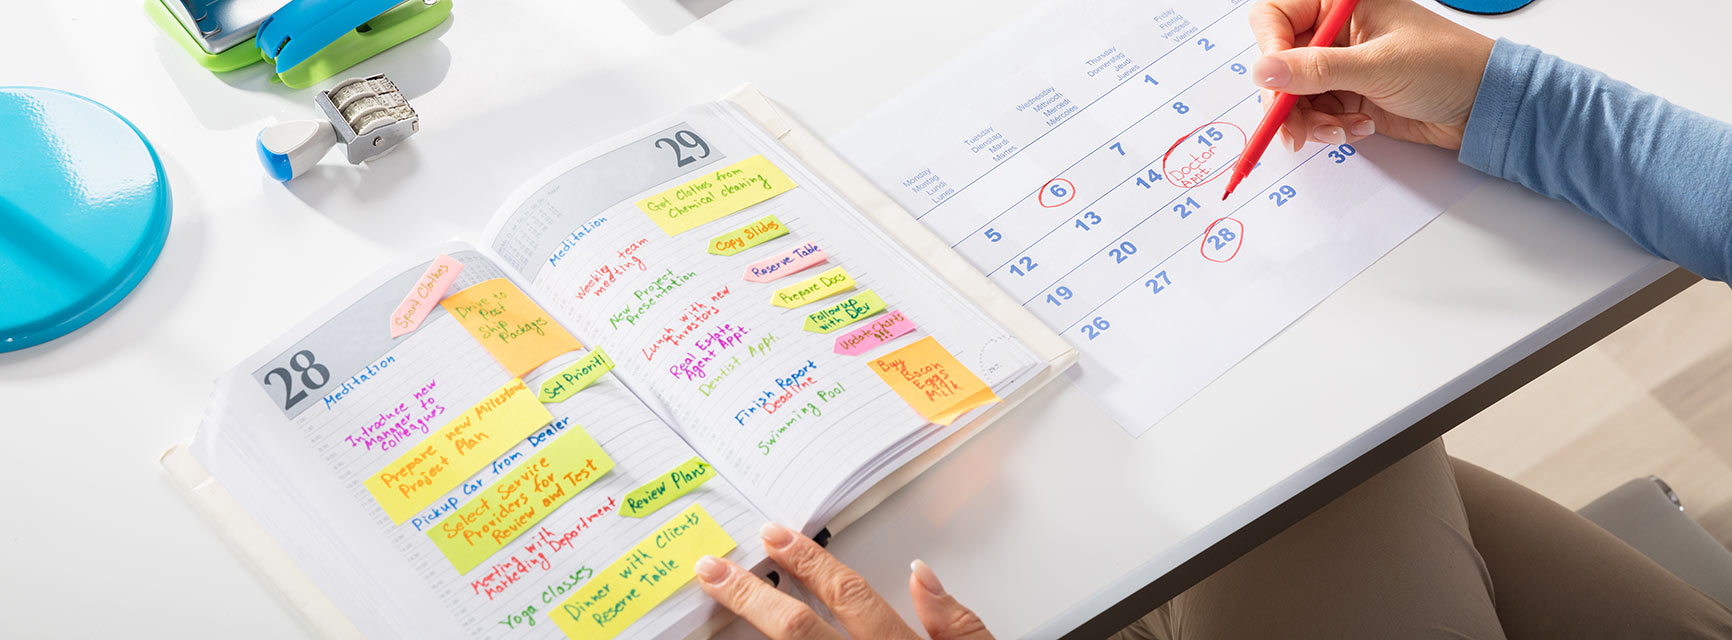 28
Meditation
Introduce new
Manager to
colleagues
Prepare new Milestone
Project Plan
Pickup Car from Dealer
Select Service
Providers for
Review and Test
Meeting with
Marketing Deportment
Yoga Classes
Dinner with Clients
Reserve Table
Clothes
Drive to
Post
Ship
Packages
Set Priorit!
Review Plans
29
Meditation
Weekly team
meeting
New Project
Presentation
Lunch with new
Investors
Real Estate
Agent Appt.
Dentist Appt.
Finish Report
Deadline
Swimming Pool
Get Clothes from
Chemical cleaning
Copy Slides
Reserve Table
Prepare Docs
Follow up
with Dev
Update Charts
Buy
Bacon
Eggs
Milk
Monday
Montag
Lundi
Lunes
Tuesday
Dienstag
Mardi
Martes
Wednesday
Mittwoch
Mercredi
Miércoles
Thursday
Donnerstag
Jeudi
Jueves
Friday
Freitag
Vendredi
Viernes
1
2
5
6
7
8
9
12
13
14
15
Doctor
Appt.
19
20
21
26
27
28
29
30